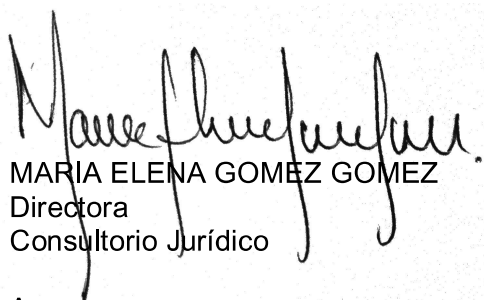 MARIA ELENA GOMEZ GOMEZ
Directora
Consultorio Jurídico